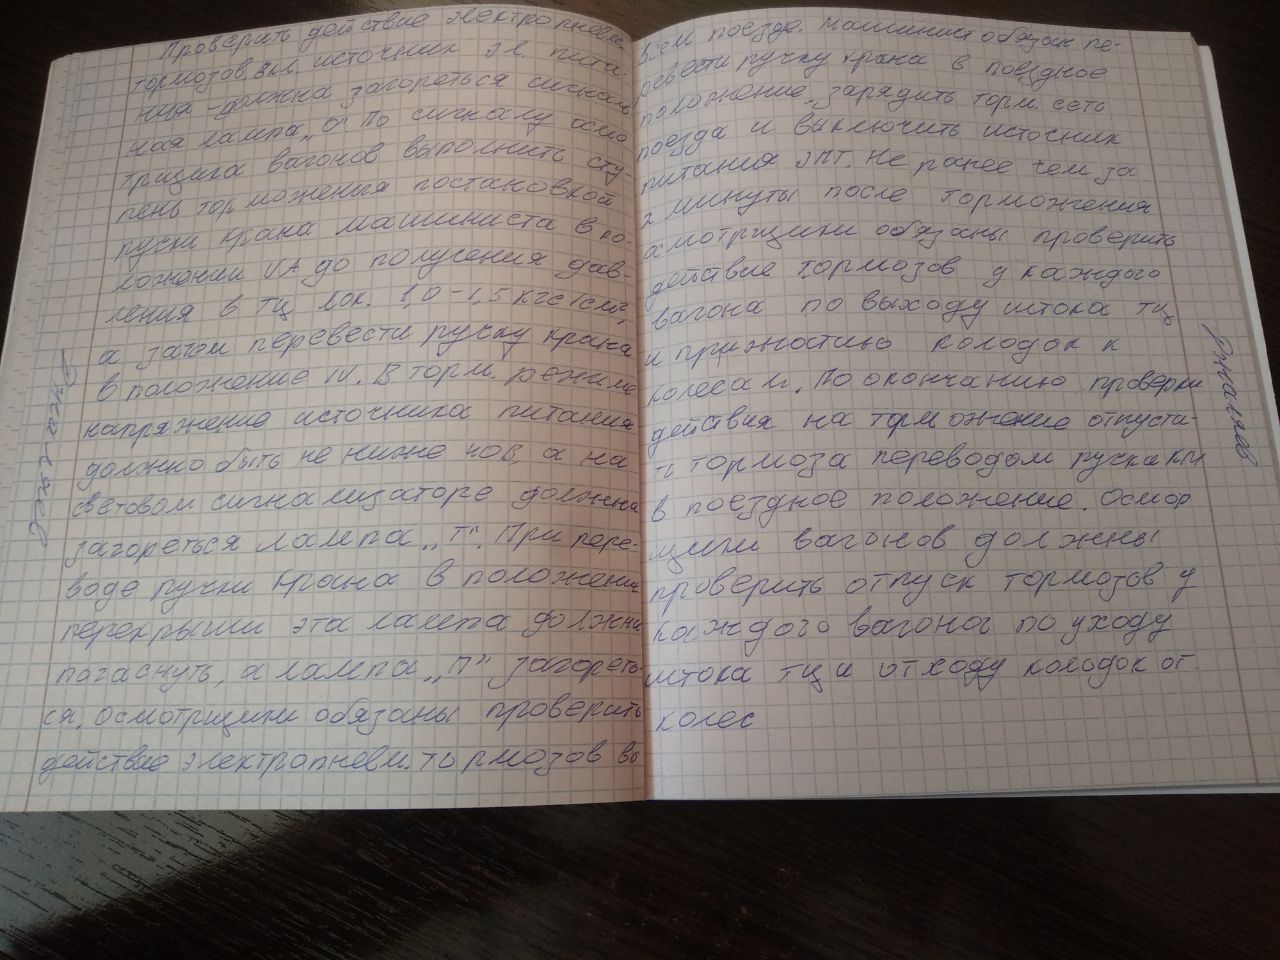 Проверить действие электропневм.
тормозов, вкл. источник эл. пита-
ния - должна загореться сигналь
ная лампа „О" По сигналу осмо
трщика вагонов выполнить сту-
пень торможения постановкой
ручки крана машиниста в по-
ложении VA до получения дав-
ления в ТЦ лок. 1,0-1,5 кгс/см²,
а затем перевести ручку крана
в положение IV. В торм. режиме
напряжение источника питания
должно быть не ниже 40В, а на
световом сигнализаторе должна
загореться лампа „Т". При пере-
воде ручки крана в положение
перекрыши эта лампа должна
погаснуть, а лампа „П" загореть-
ся, осмотрщики обязаны проверить
действие электропневм. тормозов во
всём поезде. Машинист обязан пе-
ревести ручку крана в поездное
положение, зарядить торм. сеть
поезда и выключить источник
питания ЭПТ. Не ранее чем за
2 минуты после торможения
осмотрщики обязаны проверить
действие тормозов у каждого
вагона по выходу штока тц
и прижностью колодок к
колесам. По окончанию проверки
действия на торможение отпуста-
ть тормоза переводом ручка км
в поездное положение. Осмор
щики вагонов должны
проверить отпуск тормозов у
каждого вагона по уходу
штока тц и отходу колодок от
колес